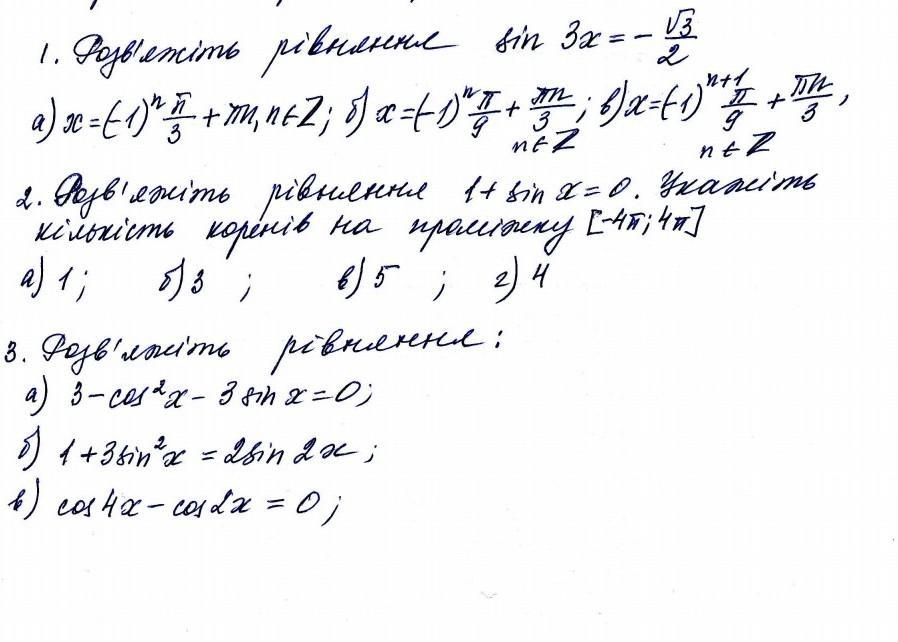 1. Розв'яжіть рівняння sin 3x = - √3/2
а) x = (-1)^n π/3 + πn, n∈Z; б) x = (-1)^n π/9 + πn/3; в) x = (-1)^(n+1) π/9 + πn/3,
n∈Z n∈Z
2. Розв'яжіть рівняння 1 + sin x = 0. Укажіть
кількість коренів на проміжку [-4π; 4π]
а) 1; б) 3 ; в) 5 ; г) 4
3. Розв'яжіть рівняння:
а) 3 - cos²x - 3 sin x = 0;
б) 1 + 3sin²x = 2sin 2x;
в) cos 4x - cos 2x = 0;